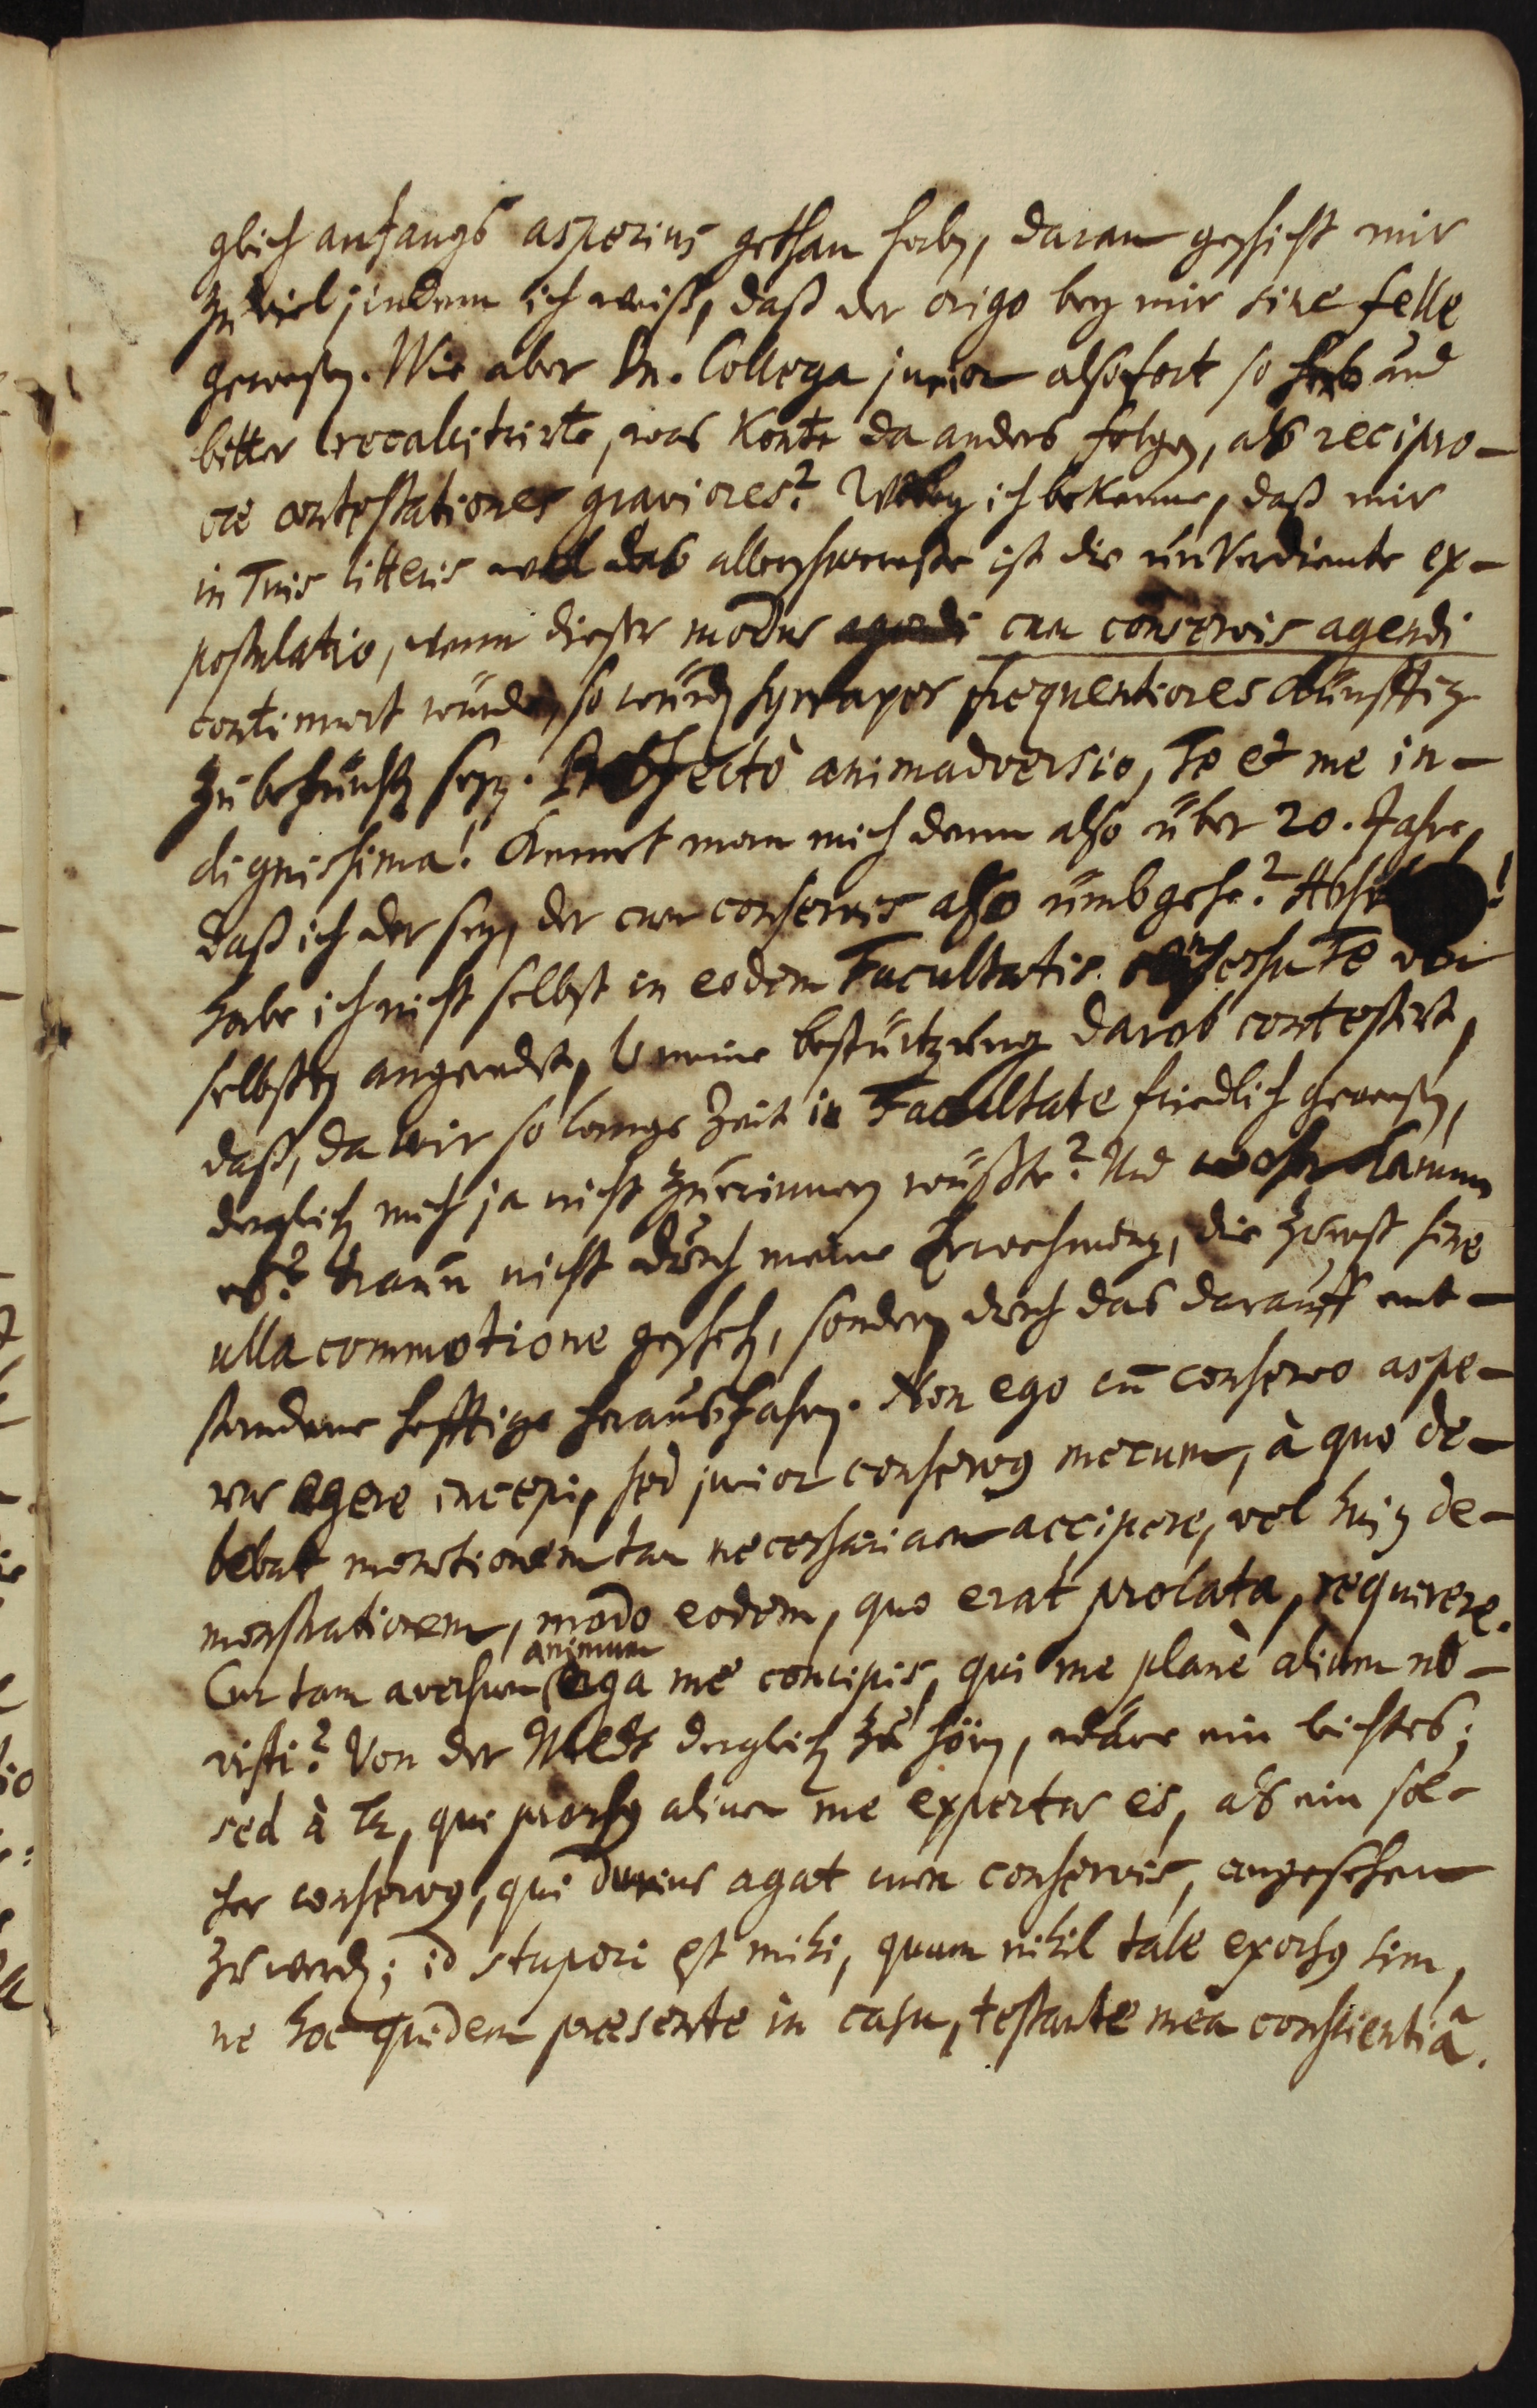 glich anfangs asperius gethan haben, daran geschicht mir
zu viel, indem ich weiß, daß der origo bey mir sine felle
gewesen. Wie aber Dn. Collega junior alsofort so herb und
bitter recalcitrirte, was konte da anders folgen, als recipro-
cæ contestationes graviores? Wobey ich bekenne, daß mir
in Tuis litteris wol das allerschwereste ist die unverdiente ex-
postulatio, wenn dieser modus agendi cum conservis agendi
continuirt würde, so würden frequentiores künfftig
zubefürchten seyn. Profectò animadversio, Te et me in-
dignissima! Kennet man mich denn also über 20. Jahre,
daß ich der sey, der cum conservis also umbgehe?
habe ich nicht selbst in eodem Facultatis consessu Te von
selbsten angeredet, u meine bestürtzung darob contestirt,
daß, da wir so lange Zeit in Facultate friedlich gewesen,
derglich mich ja nicht zuerinnern wüßte? Und woher kamm
es? traun nicht durch meine Erwehnung, die zuerst sine
ulla commotione geschehen, sondern durch das darauff ent-
standene hefftige herausfahren. Non ego cū conservo aspe-
rus agere incepi, sed junior conservus mecum, à quo de-
bebat monitionem tam necessariam accipere, vel hujus de-
monstrationem, modo eodem, quo erat prolata, requirere.
Cur tam aversum animum erga me concipis, qui me planè alium no-
visti? Von der Welt derglich zu hören, wäre ein leichtes;
sed à Te, qui prorsus alium me expertus es, als ein sol-
cher conservus, qui durius agat cum conservis, angesehen
zu werden; id stupori est mihi, quum nihil tale exorsus sim,
ne hoc quidem præsente in casu, testante meâ conscientiâ.